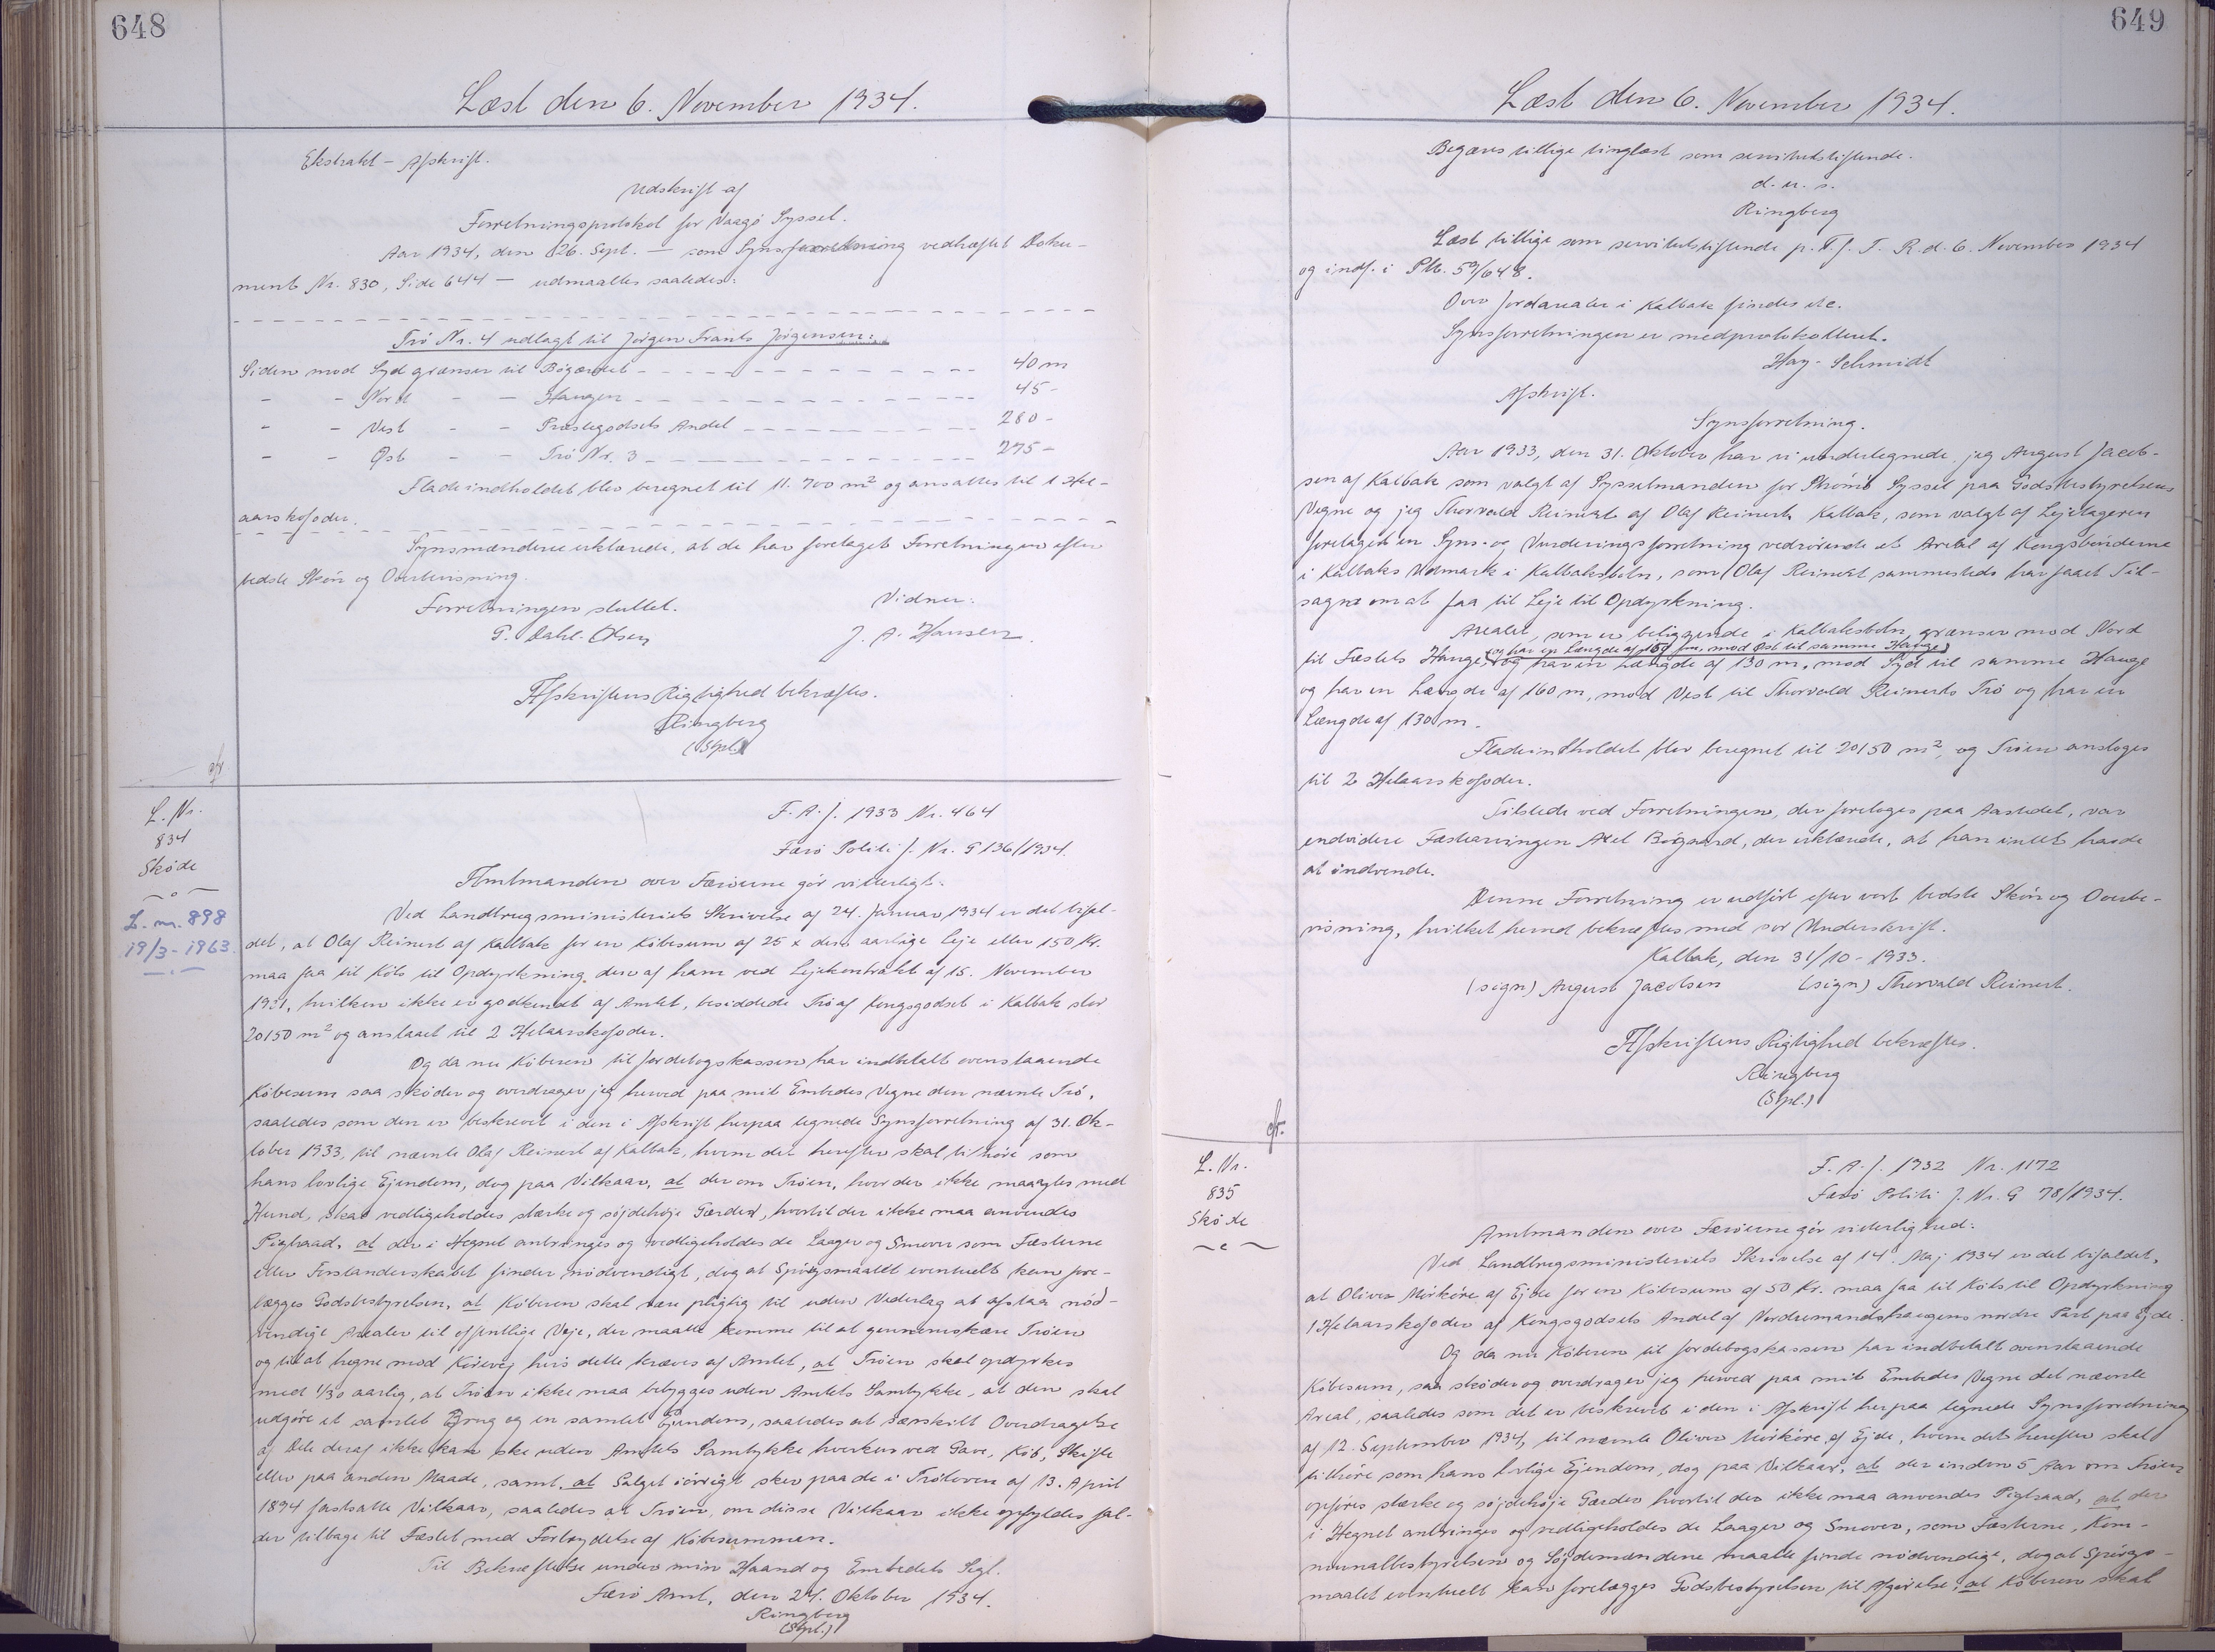 648
Læst den 6. November 1934.
Ekstrakt - Afskrift.
Udskrift af
Forretningsprotokol for Vaagø Syssel.
Aar 1934, den 26. Sept. — som Synsforretning vedhæftet Doku-
ment Nr. 830, Side 644 — udmaaltes saaledes:
Trö Nr. 4 udlagt til Jørgen Frants Jørgensen:
Siden mod Syd grænser til Bøgærdet - - - 40 m
- - Nord - - Haugen - - - 45 -
- - Vest - - Præstegodsets Andel - - - 280 -
- - Øst - - Trö Nr. 3 - - - 275 -
Fladeindholdet blev beregnet til 11.700 m² og ansattes til 1 Hel-
aarskofoder.
Synsmændene erklærede, at de har foretaget Forretningen efter
bedste Skön og Overbevisning.
Forretningen sluttet. Vidner:
P. Dahl-Olsen J. A. Hansen.
Afskriftens Rigtighed bekræftes.
Ringberg
(Stpl.)
cfr.
L. Nr.
834
Sköde
L. nr. 898
19/3-1963.
F. A. J. 1933 Nr. 464
Færö Politi J. Nr. G 136/1934.
Amtmanden over Færöerne gör vitterligt:
Ved Landbrugsministeriets Skrivelse af 24. Januar 1934 er det bifal-
det, at Olaf Reinert af Kalbak for en Köbesum af 25 x den aarlige Leje eller 150 Kr.
maa faa til Köb til Opdyrkning den af ham ved Lejekontrakt af 15. November
1931, hvilken ikke er godkendt af Amtet, besiddede Trö af Kongsgodset i Kalbak stor
20150 m² og anslaaet til 2 Helaarskofoder.
Og da nu Köberen til Jordebogskassen har indbetalt ovenstaaende
Köbesum saa sköder og overdrager jeg herved paa mit Embedes Vegne den nævnte Trö,
saaledes som den er beskrevet i den i Afskrift herpaa tegnede Synsforretning af 31. Ok-
tober 1933, til nævnte Olaf Reinert af Kalbak, hvem det herefter skal tilhöre som
hans lovlige Ejendom, dog paa Vilkaar, at der om Tröen, hvor der ikke maa gles med
Hund, skal vedligeholdes stærke og söjdehöje Gærder, hvortil der ikke maa anvendes
Pigtraad, at der i Hegnet anbringes og vedligeholdes de Laager og Smover som Fæsterne
eller Forstanderskabet finder nödvendigt, dog at Spörgsmaalet eventuelt kan fore-
lægges Godsbestyrelsen, at Köberen skal være pligtig til uden Vederlag at afstaa nöd-
vendige Arealer til offentlige Veje, der maatte komme til at gennemskære Tröen
og til at hegne mod Körevej hvis dette kræves af Amtet, at Tröen skal opdyrkes
med 1/30 aarlig, at Tröen ikke maa bebygges uden Amtets Samtykke, at den skal
udgöre et samlet Brug og en samlet Ejendom, saaledes at særskilt Overdragelse
af Dele deraf ikke kan ske uden Amtets Samtykke hverken ved Gave, Köb, Skifte
eller paa anden Maade, samt at Salget iövrigt sker paa de i Tröloven af 13. April
1894 fastsatte Vilkaar, saaledes at Tröen, om disse Vilkaar ikke opfyldes fal-
der tilbage til Fæstet med Fortrydelse af Köbesummen.
Til Bekræftelse under min Haand og Embedets Segl.
Færö Amt, den 24. Oktober 1934.
Ringberg
(Stpl.)
649
Læst den 6. November 1934.
Begæres tillige tinglæst som servitutstiftende.
d. u. s.
Ringberg
Læst tillige som servitutstiftende p. F. J. T. R. d. 6. November 1934
og indf. i Ptk. 59/648.
Over Jordarealer i Kalbak findes etc.
Synsforretningen er medprotokolleret.
Hay-Schmidt
Afskrift.
Synsforretning.
Aar 1933, den 31. Oktober har vi undertegnede, jeg August Jacob-
sen af Kalbak som valgt af Sysselmanden for Strömö Syssel paa Godsbestyrelsens
Vegne og jeg Thorvald Reinert af Olaf Reinert, Kalbak, som valgt af Lejetageren
foretaget en Syns- og Vurderingsforretning vedrörende et Areal af Kongsbönderne
i Kalbaks Udmark i Kalbaksbotn, som Olaf Reinert sammesteds har faaet Til-
sagn om at faa til Leje til Opdyrkning.
Arealet, som er beliggende i Kalbaksbotn, grænser mod Nord
til Fæstets Hauge, (og har en Længde af 150 m, mod Øst til samme Hauge)
og har en Længde af 130 m, mod Syd til samme Hauge
og har en Længde af 160 m, mod Vest til Thorvald Reinerts Trö og har en
Længde af 130 m.
Fladeindholdet blev beregnet til 20150 m², og Tröen ansloges
til 2 Helaarskofoder.
Tilstede ved Forretningen, der foretoges paa Aastedet, var
endvidere Fæstearvingen Axel Bögaard, der erklærede, at han intet havde
at indvende.
Denne Forretning er udfört efter vort bedste Skön og Overbe-
visning, hvilket herved bekræftes med vor Underskrift.
Kalbak, den 31/10-1933.
(sign) August Jacobsen (sign) Thorvald Reinert.
Afskriftens Rigtighed bekræftes.
Ringberg
(Stpl.)
cfr.
L. Nr.
835
Sköde
F. A. J. 1932 Nr. 1172
Færö Politi J. Nr. G 78/1934.
Amtmanden over Færöerne gör vitterlighed:
Ved Landbrugsministeriets Skrivelse af 14. Maj 1934 er det bifaldet,
at Oliver Mörköre af Ejde for en Köbesum af 50 Kr. maa faa til Köb til Opdyrkning
1 Helaarskofoder af Kongsgodsets Andel af Nordremandshaugens nordre Part paa Ejde.
Og da nu Köberen til Jordebogskassen har indbetalt ovenstaaende
Köbesum, saa sköder og overdrager jeg herved paa mit Embedes Vegne det nævnte
Areal, saaledes som det er beskrevet i den i Afskrift herpaa tegnede Synsforretning
af 12. September 1934, til nævnte Oliver Mörköre af Ejde, hvem det herefter skal
tilhöre som hans lovlige Ejendom, dog paa Vilkaar, at der inden 5 Aar om Tröen
opföres stærke og söjdehöje Gærder hvortil der ikke maa anvendes Pigtraad, at der
i Hegnet anbringes og vedligeholdes de Laager og Smover, som Fæsterne, Kom-
munalbestyrelsen og Söjdemændene maatte finde nödvendige, dog at Spörgs-
maalet eventuelt kan forelægges Godsbestyrelsen til Afgörelse, at Köberen skal